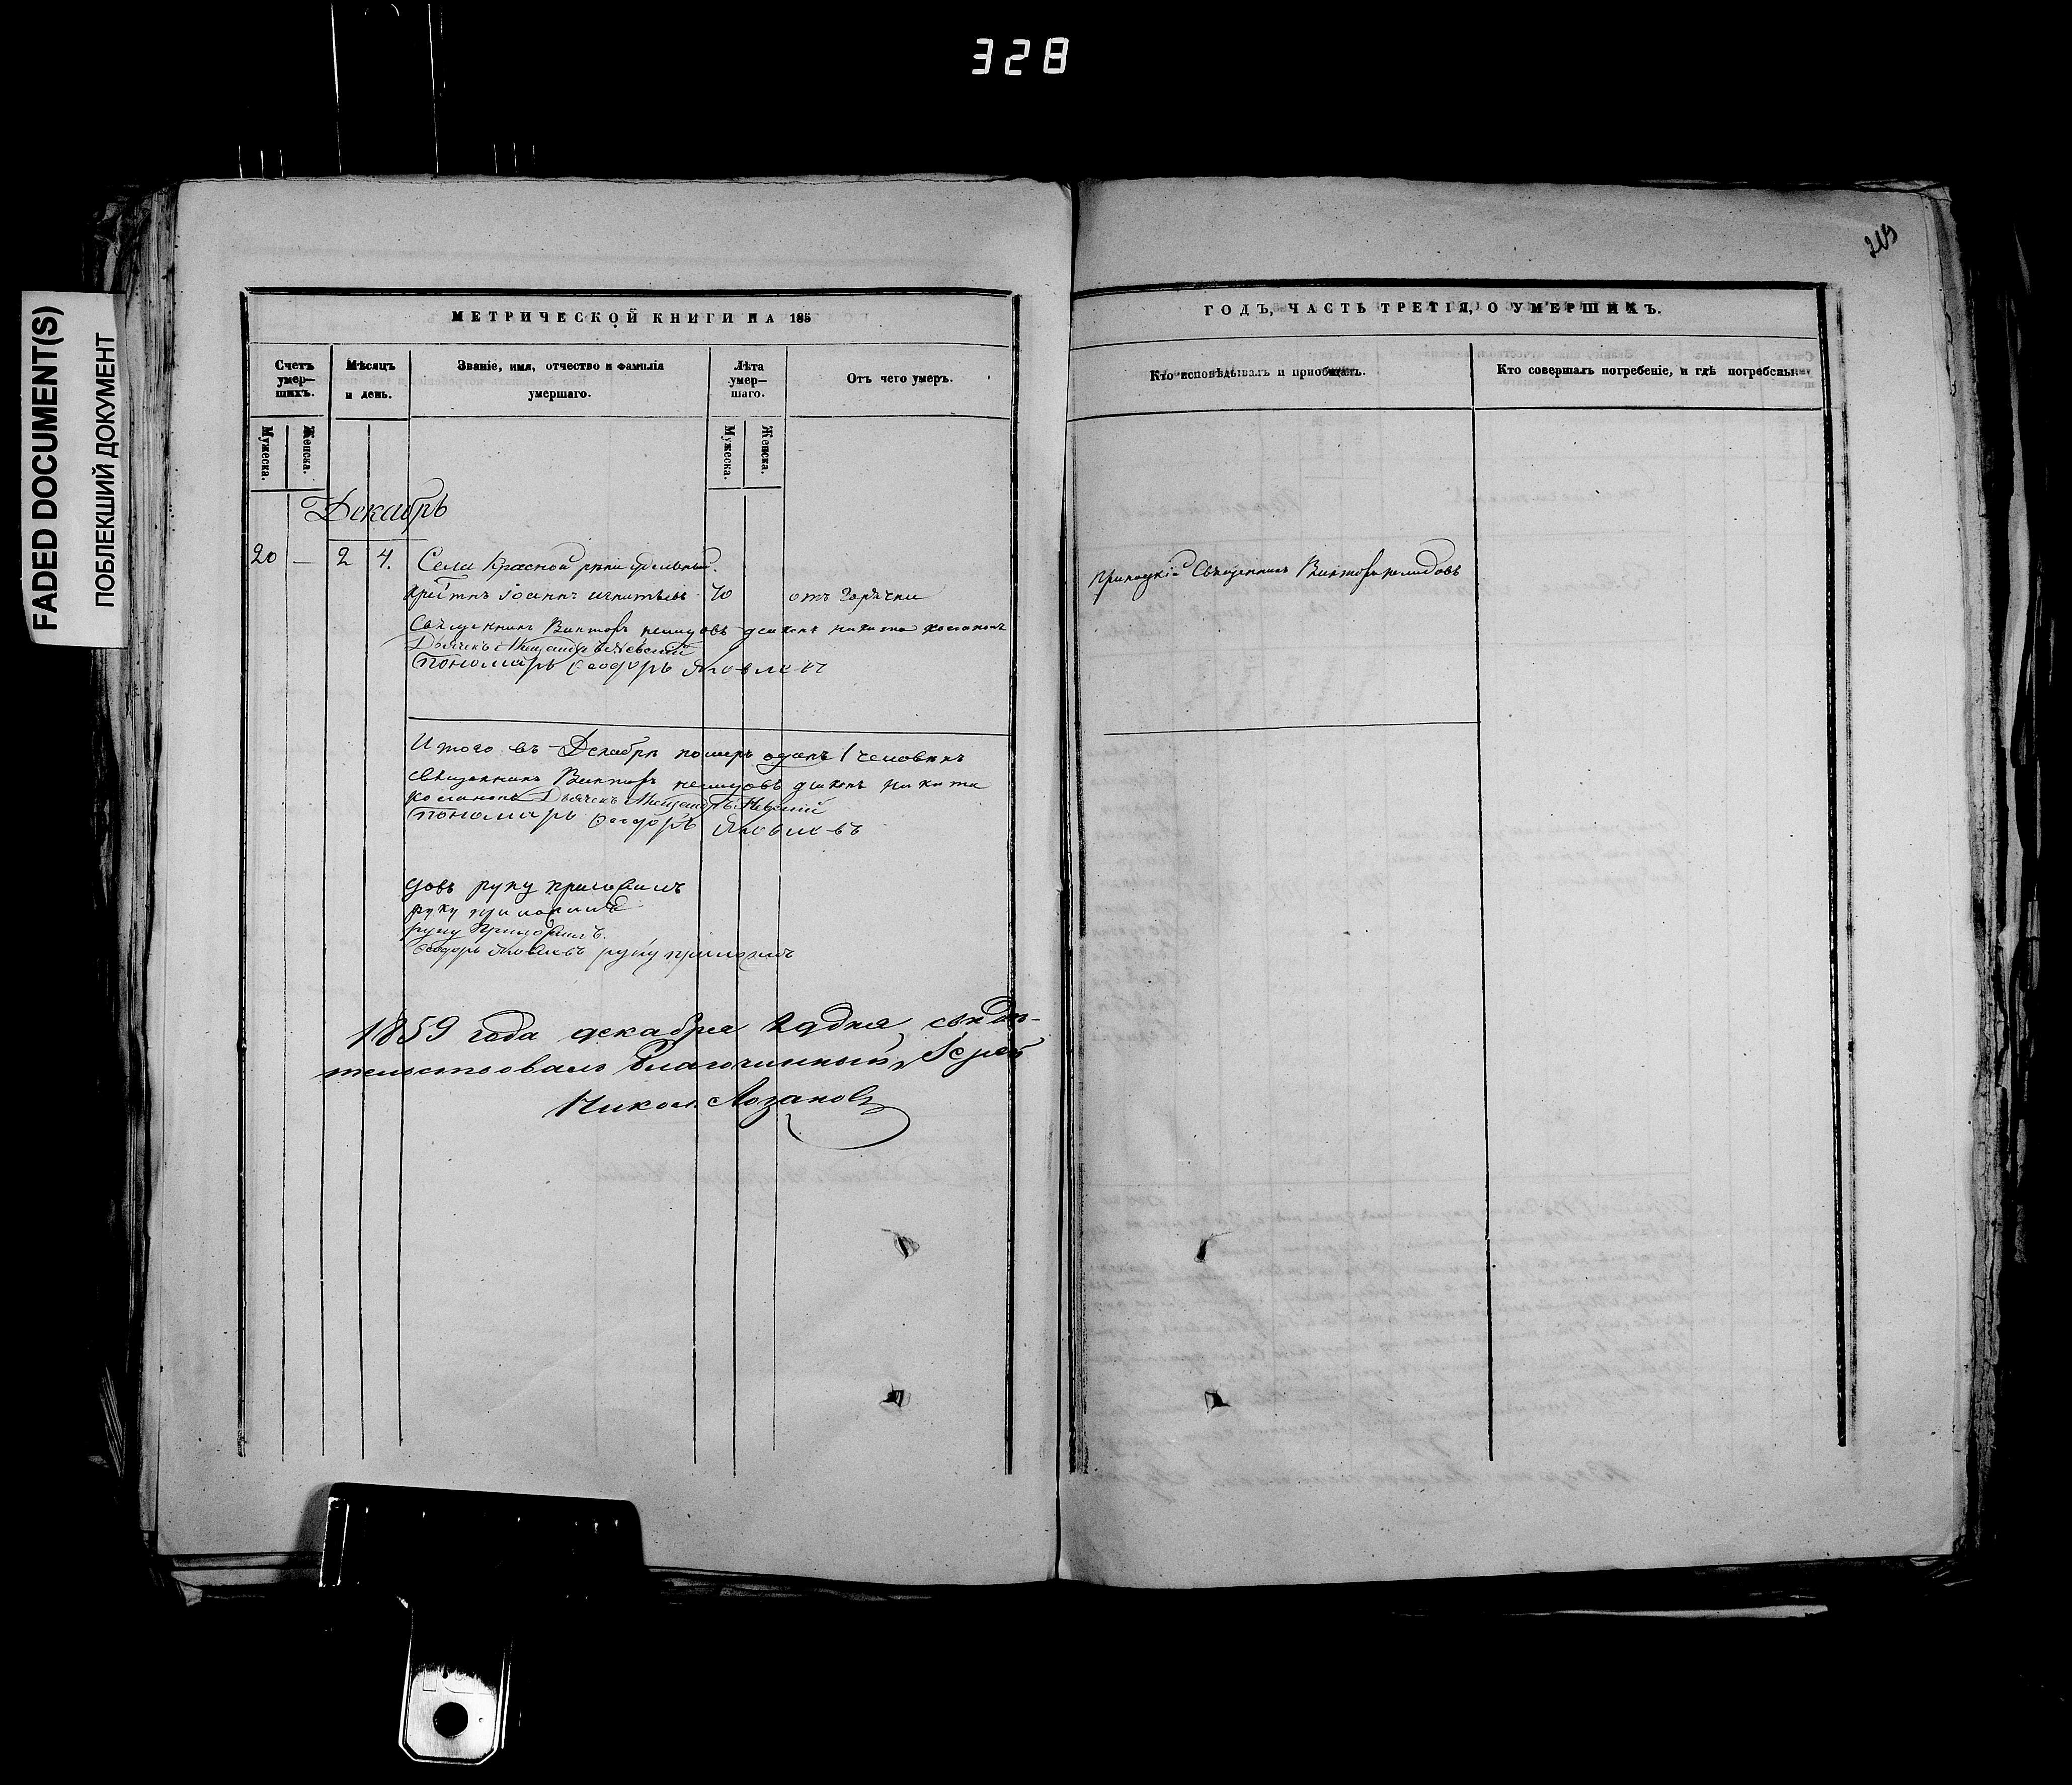 328
FADED DOCUMENT(S)
ПОБЛЕКШИЙ ДОКУМЕНТ
МЕТРИЧЕСКОЙ КНИГИ НА 185
Счетъ умер— шихъ.
Мѣсяцъ и день.
Званіе, имя, отчество и фамилія умершаго.
Лѣта умер— шаго.
Отъ чего умеръ.
Мужеска.
Женска.
Мужеска.
Женска.
Декабрь
20 — 2 4. Села Красной рѣки удѣльный.
крестнъ Іоаннъ Игнатьевъ 70 отъ горячки
Священникъ Викторъ діаконъ Никита
Дьячекъ
Пономарь Ѳеодоръ Яковлевъ
Итого въ Декабрѣ померъ одинъ 1 человѣкъ
священникъ Викторъ діаконъ Никита
Дьячекъ
Пономарь Ѳеодоръ Яковлевъ
руку приложилъ
руку приложилъ
руку приложилъ.
Ѳеодоръ Яковлевъ руку приложилъ
1859 года декабря 29 дня свидѣ-
тельствовалъ Благочинный, Іерей
Никол. Лозановъ
219
ГОДЪ, ЧАСТЬ ТРЕТІЯ, О УМЕРШИХЪ.
Кто исповѣдывалъ и пріобщалъ.
Кто совершалъ погребеніе, и гдѣ погребены.
Приходскій Священникъ Викторъ